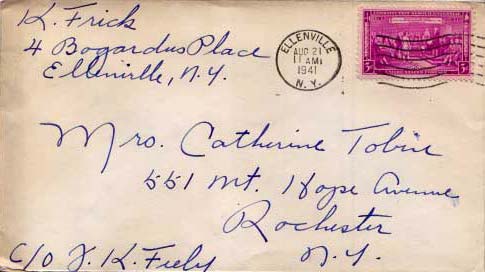 K. Frick
4 Bogardus Place
Ellenville, N.Y.
ELLENVILLE
AUG 21
11 AM
1941
N.Y.
3¢ 3¢
Mrs. Catherine Tobin
551 Mt. Hope Avenue
Rochester
N.Y.
C/O J. K. Feely